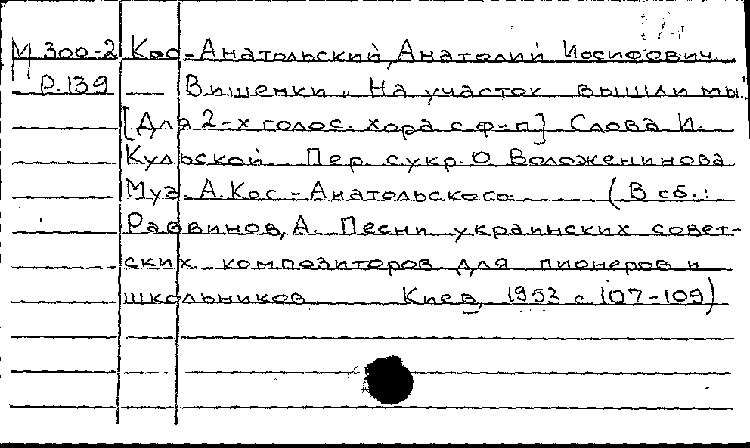 М 300-2 Кос-Анатольский, Анатолий Иосифович
Р.139 — Вишенки. На участок вышли мы.
[Для 2-х голос. хора с ф-п] Слова И.
Кульской Пер. с укр. О. Воложенинова
Муз. А. Кос-Анатольского (В сб.:
Раввинов, А. Песни украинских совет-
ских композиторов для пионеров и
школьников Киев, 1953 с 107-109)